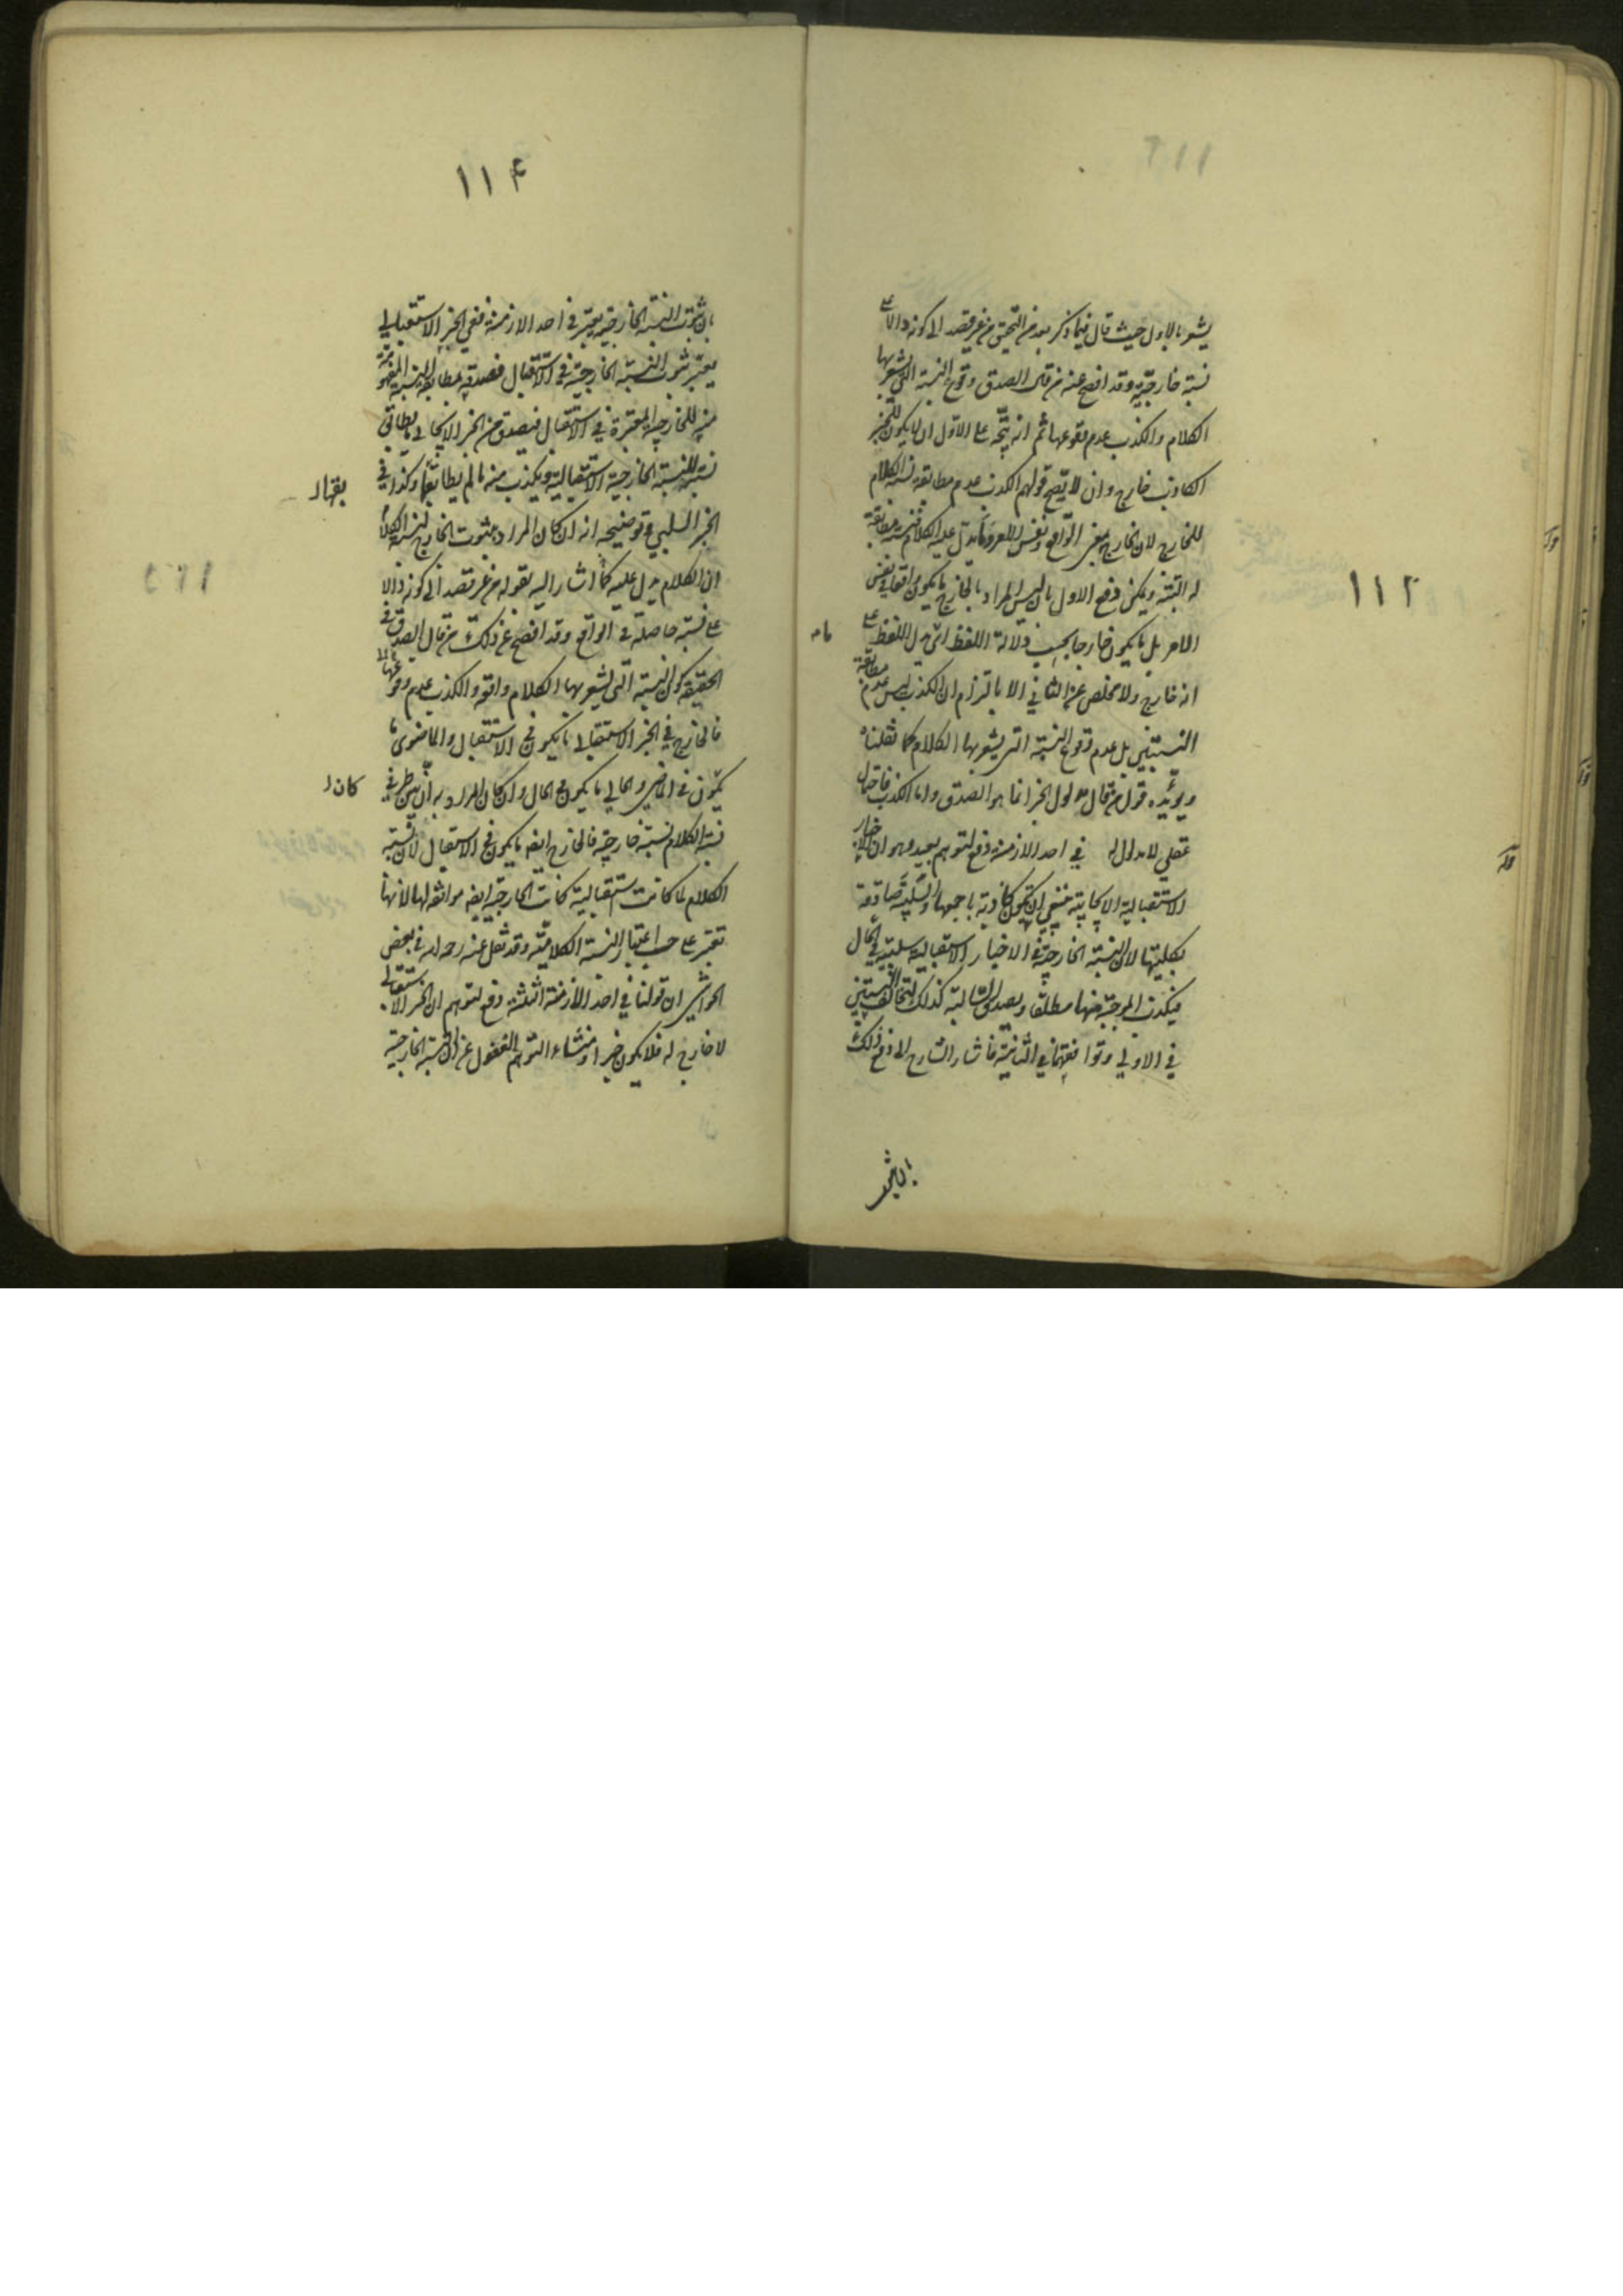 ١١٢
يشعر بالاول حيث قال فيما ذكر بعد من التحقيق من غير قصد الى كونه دالا على
نسبة خارجية وقد افصح عنه من قال الصدق وقوع النسبة التى يشعر بها
الكلام والكذب عدم وقوعها ثم انه يتجه على الاول ان لا يكون للخبر
الكاذب خارج وان لا يصح قولهم الكذب عدم مطابقة نسبة الكلام
للخارج لان الخارج بمعنى الواقع ونفس الامر وما يدل عليه الكلام مطابقة
له البتة ويمكن دفع الاول بان ليس المراد بالخارج ما يكون واقعا في نفس
الامر بل ما يكون خارجا بحسب دلالة اللفظ اى يدل اللفظ على
انه خارج ولا مخلص عن الثاني الا بالتزام ان الكذب ليس عدم مطابقة
النسبتين بل عدم وقوع النسبة التى يشعر بها الكلام كما نقلناه
ويؤيده قول من قال مدلول الخبر انما هو الصدق واما الكذب فاحتمال
عقلي لا مدلول له في احد الازمنة دفع لتوهم بعيد وهو ان الاخبار
الاستقبالية الايجابية ينبغي ان تكون كاذبة باجمعها والسلبية صادقة
بكليتها لان النسبة الخارجية في الاخبار الاستقبالية سلبية في الحال
فيكذب الموجبة منها مطلقا ويصدق السالبة كذلك لتخالف النسبتين
في الاولى وتوافقهما في الثانية فاشار الشارح الى دفع ذلك
بان ثبوت
١١٤
بان ثبوت النسبة الخارجية يعتبر في احد الازمنة ففي الخبر الاستقبالي
يعتبر ثبوت النسبة الخارجية في الاستقبال فصدقه بمطابقة النسبة المفهومة
منه للخارجية المعتبرة في الاستقبال فيصدق من الخبر الايجابي ما يطابق
نسبته للنسبة الخارجية الاستقبالية ويكذب منه ما لم يطابقها وكذا في
الخبر السلبي وتوضيحه انه ان كان المراد بثبوت الخارج لنسبة الكلام
ان الكلام يدل عليه كما اشار اليه بقوله من غير قصد الى كونه دالا
على نسبة حاصلة في الواقع وقد افصح عن ذلك من قال الصدق في
الحقيقة كون النسبة التى يشعر بها الكلام واقعة والكذب عدم وقوعها
فالخارج في الخبر الاستقبالى ما يكون في الاستقبال والماضوى ما
يكون في الماضي والحالي ما يكون في الحال وان كان المراد به ان بين طرفي
نسبة الكلام نسبة خارجية فالخارج ايضا ما يكون في الاستقبال لان نسبة
الكلام لما كانت استقبالية كانت الخارجية ايضا موافقة لها لانها
تعتبر على حسب اعتبار النسبة الكلامية وقد نقل عنه رحمه الله في بعض
الحواشي ان قولنا في احد الازمنة الثلثة دفع لتوهم ان الخبر الاستقبالى
لا خارج له فلا يكون خبرا ومنشاء التوهم الغفول عن ان النسبة الخارجية